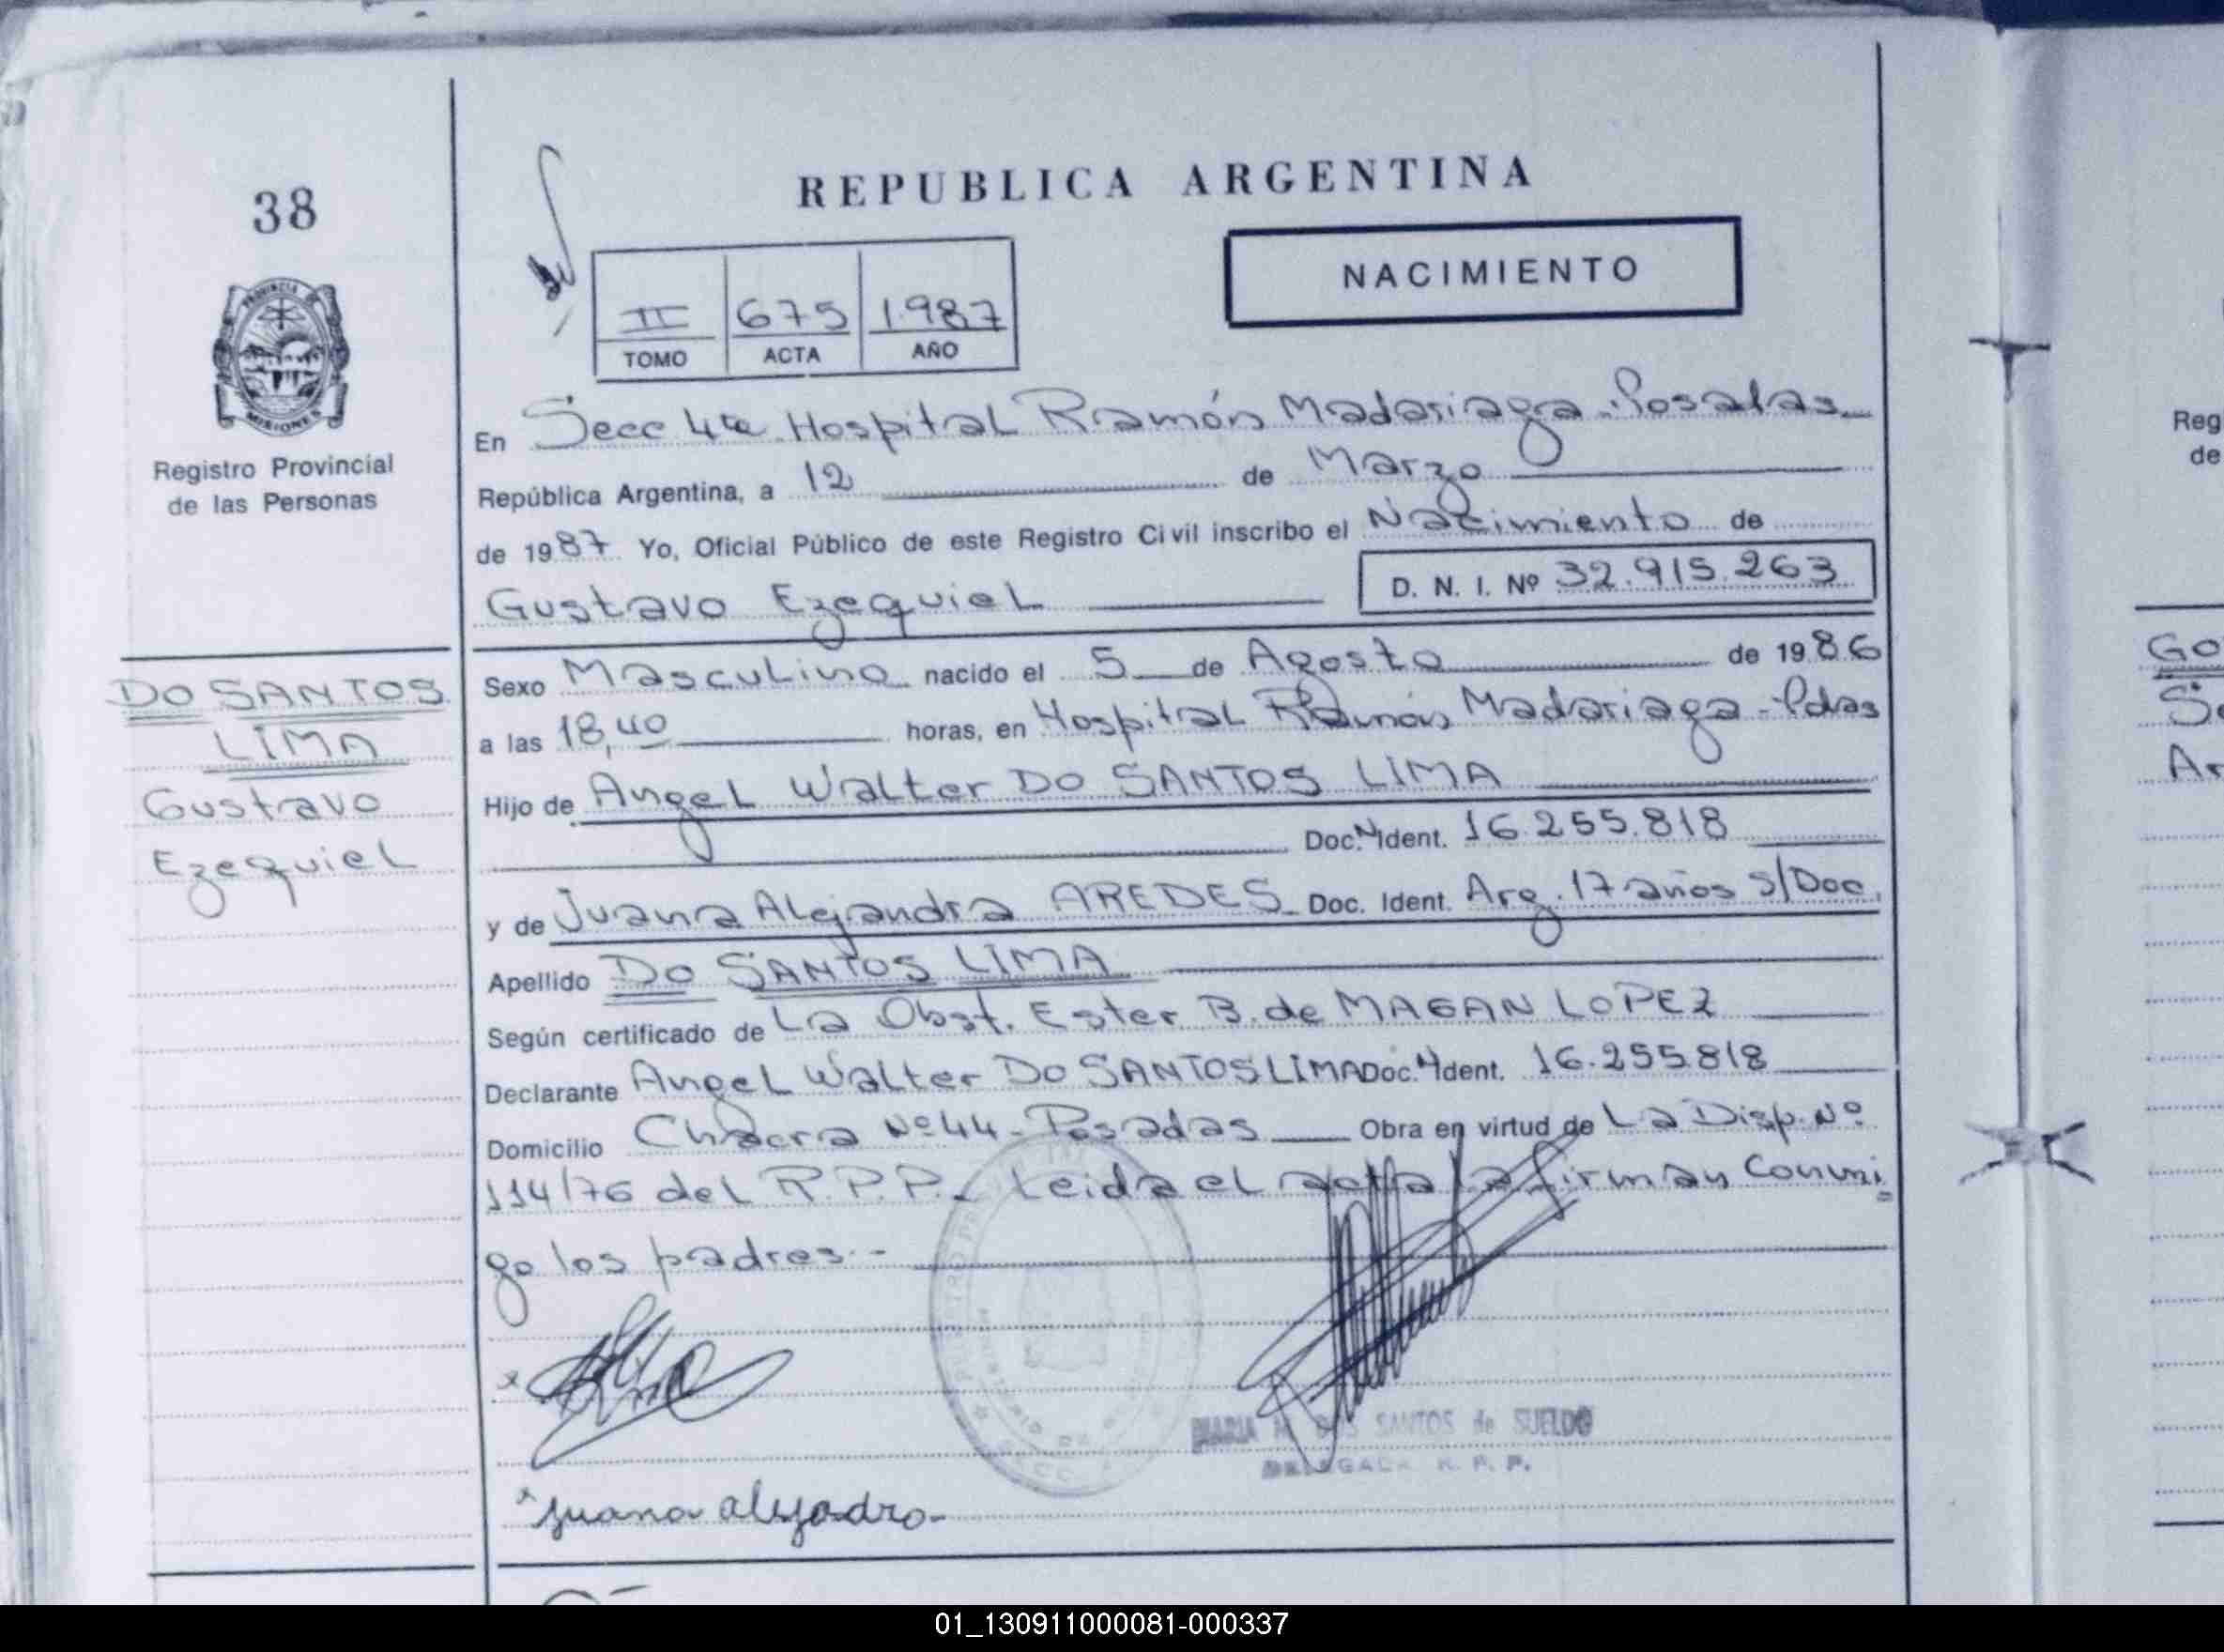 38
REPUBLICA ARGENTINA
NACIMIENTO
PROVINCIA DE
MISIONES
Registro Provincial
de las Personas
II 675 1987
TOMO ACTA AÑO
En Secc 4ta Hospital Ramón Madariaga - Posadas
República Argentina, a 12 de Marzo
de 1987 Yo, Oficial Público de este Registro Civil inscribo el Nacimiento de
Gustavo Ezequiel D. N. I. Nº 32.915.263
DO SANTOS
LIMA
Gustavo
Ezequiel
Sexo Masculino nacido el 5 de Agosto de 1986
a las 18,40 horas, en Hospital Ramón Madariaga - Pdas
Hijo de Angel Walter DO SANTOS LIMA
Doc. N Ident. 16.255.818
y de Juana Alejandra AREDES Doc. Ident. Arg. 17 años s/Doc.
Apellido DO SANTOS LIMA
Según certificado de La Obst. Ester B. de MAGAN LOPEZ
Declarante Angel Walter DO SANTOS LIMA Doc. N Ident. 16.255.818
Domicilio Chacra Nº 44 - Posadas Obra en virtud de La Disp. Nº
114/76 del R.P.P. - Leida el acta la firman Conmi
go los padres.-
MARIA M. DOS SANTOS de SUELDO
DELEGADA R. P. P.
Juana alejadro
Reg
de
GO
Se
Ar
01_130911000081-000337